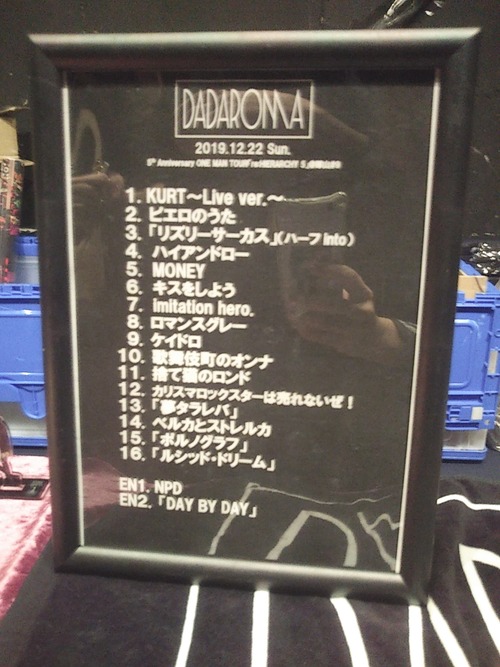 DADAROMA
2019.12.22 Sun.
5th Anniversary ONE MAN TOUR「re:HIERARCHY 5」
1. KURT～Live ver.～
2. ピエロのうた
3. 「リズリーサーカス」(ハーフinto)
4. ハイアンドロー
5. MONEY
6. キスをしよう
7. imitation hero.
8. ロマンスグレー
9. ケイドロ
10. 歌舞伎町のオンナ
11. 捨て猫のロンド
12. カリスマロックスターは売れないぜ！
13. 「夢タラレバ」
14. ベルカとストレルカ
15. 「ポルノグラフ」
16. 「ルシッド・ドリーム」
EN1. NPD
EN2. 「DAY BY DAY」